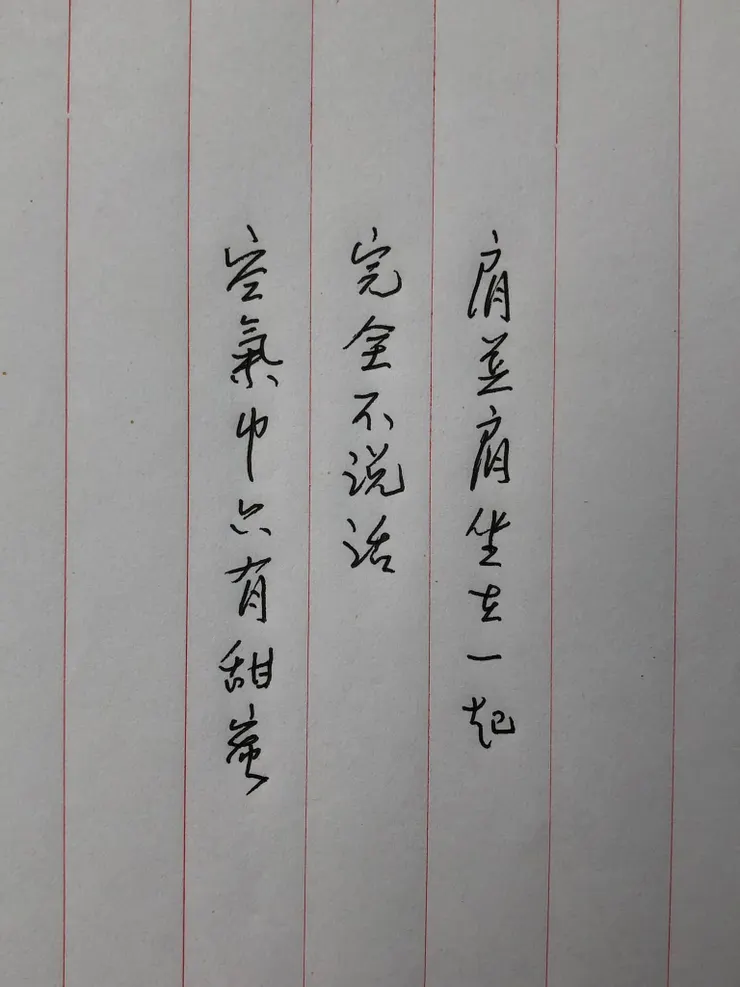 肩並肩坐在一起
完全不说话
空氣中只有甜蜜